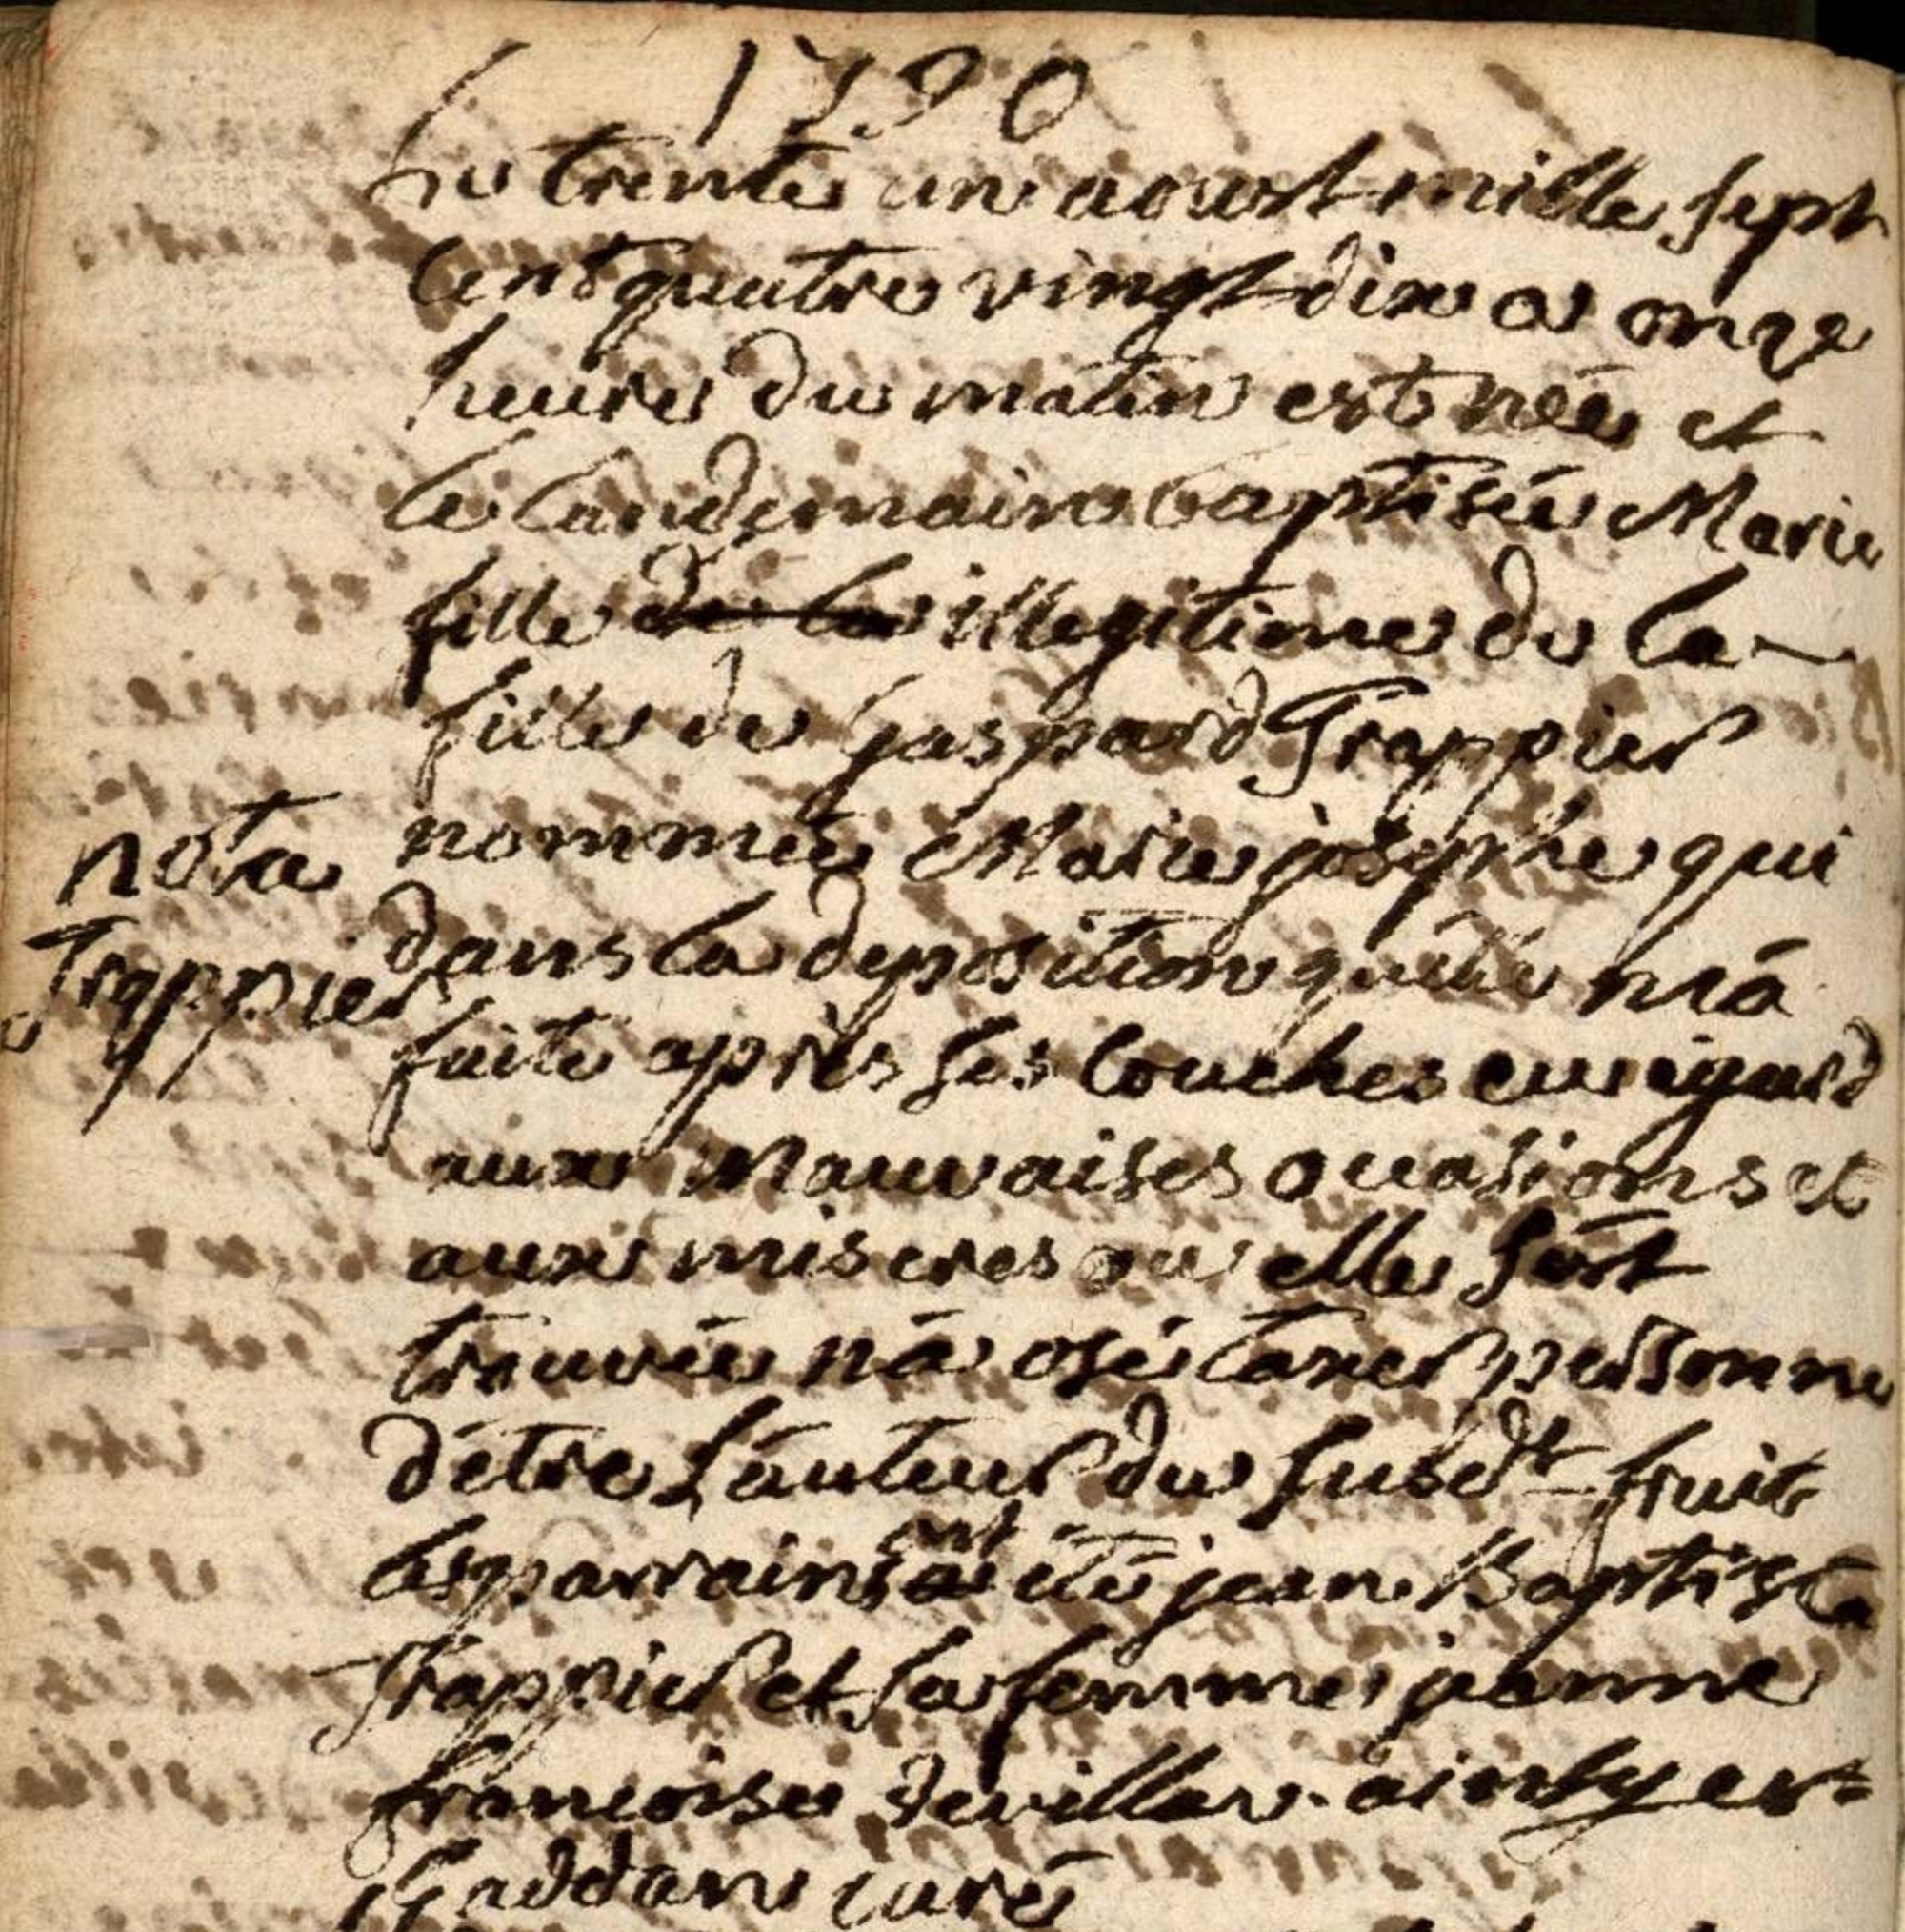 1790
Le trente un aoust mille sept
cent quatre vingt dix a onze
heures du matin est née et
le landemain baptisée Marie
fille de la illegitime de la
fille de Gaspard Trappier
nommée Marie josephe qui
nota
dans la deposition quelle m'á
Trappier
faite après ses couches eu égard
aux mauvaises ocasions et
aux miseres ou elle s'est
trouvée n'a osé taxer personne
d'être L'auteur du susdt fruit
les parrains a ont été jean Baptiste
Trappier et sa femme jeanne
françoise Devillar. ainsy est
curé